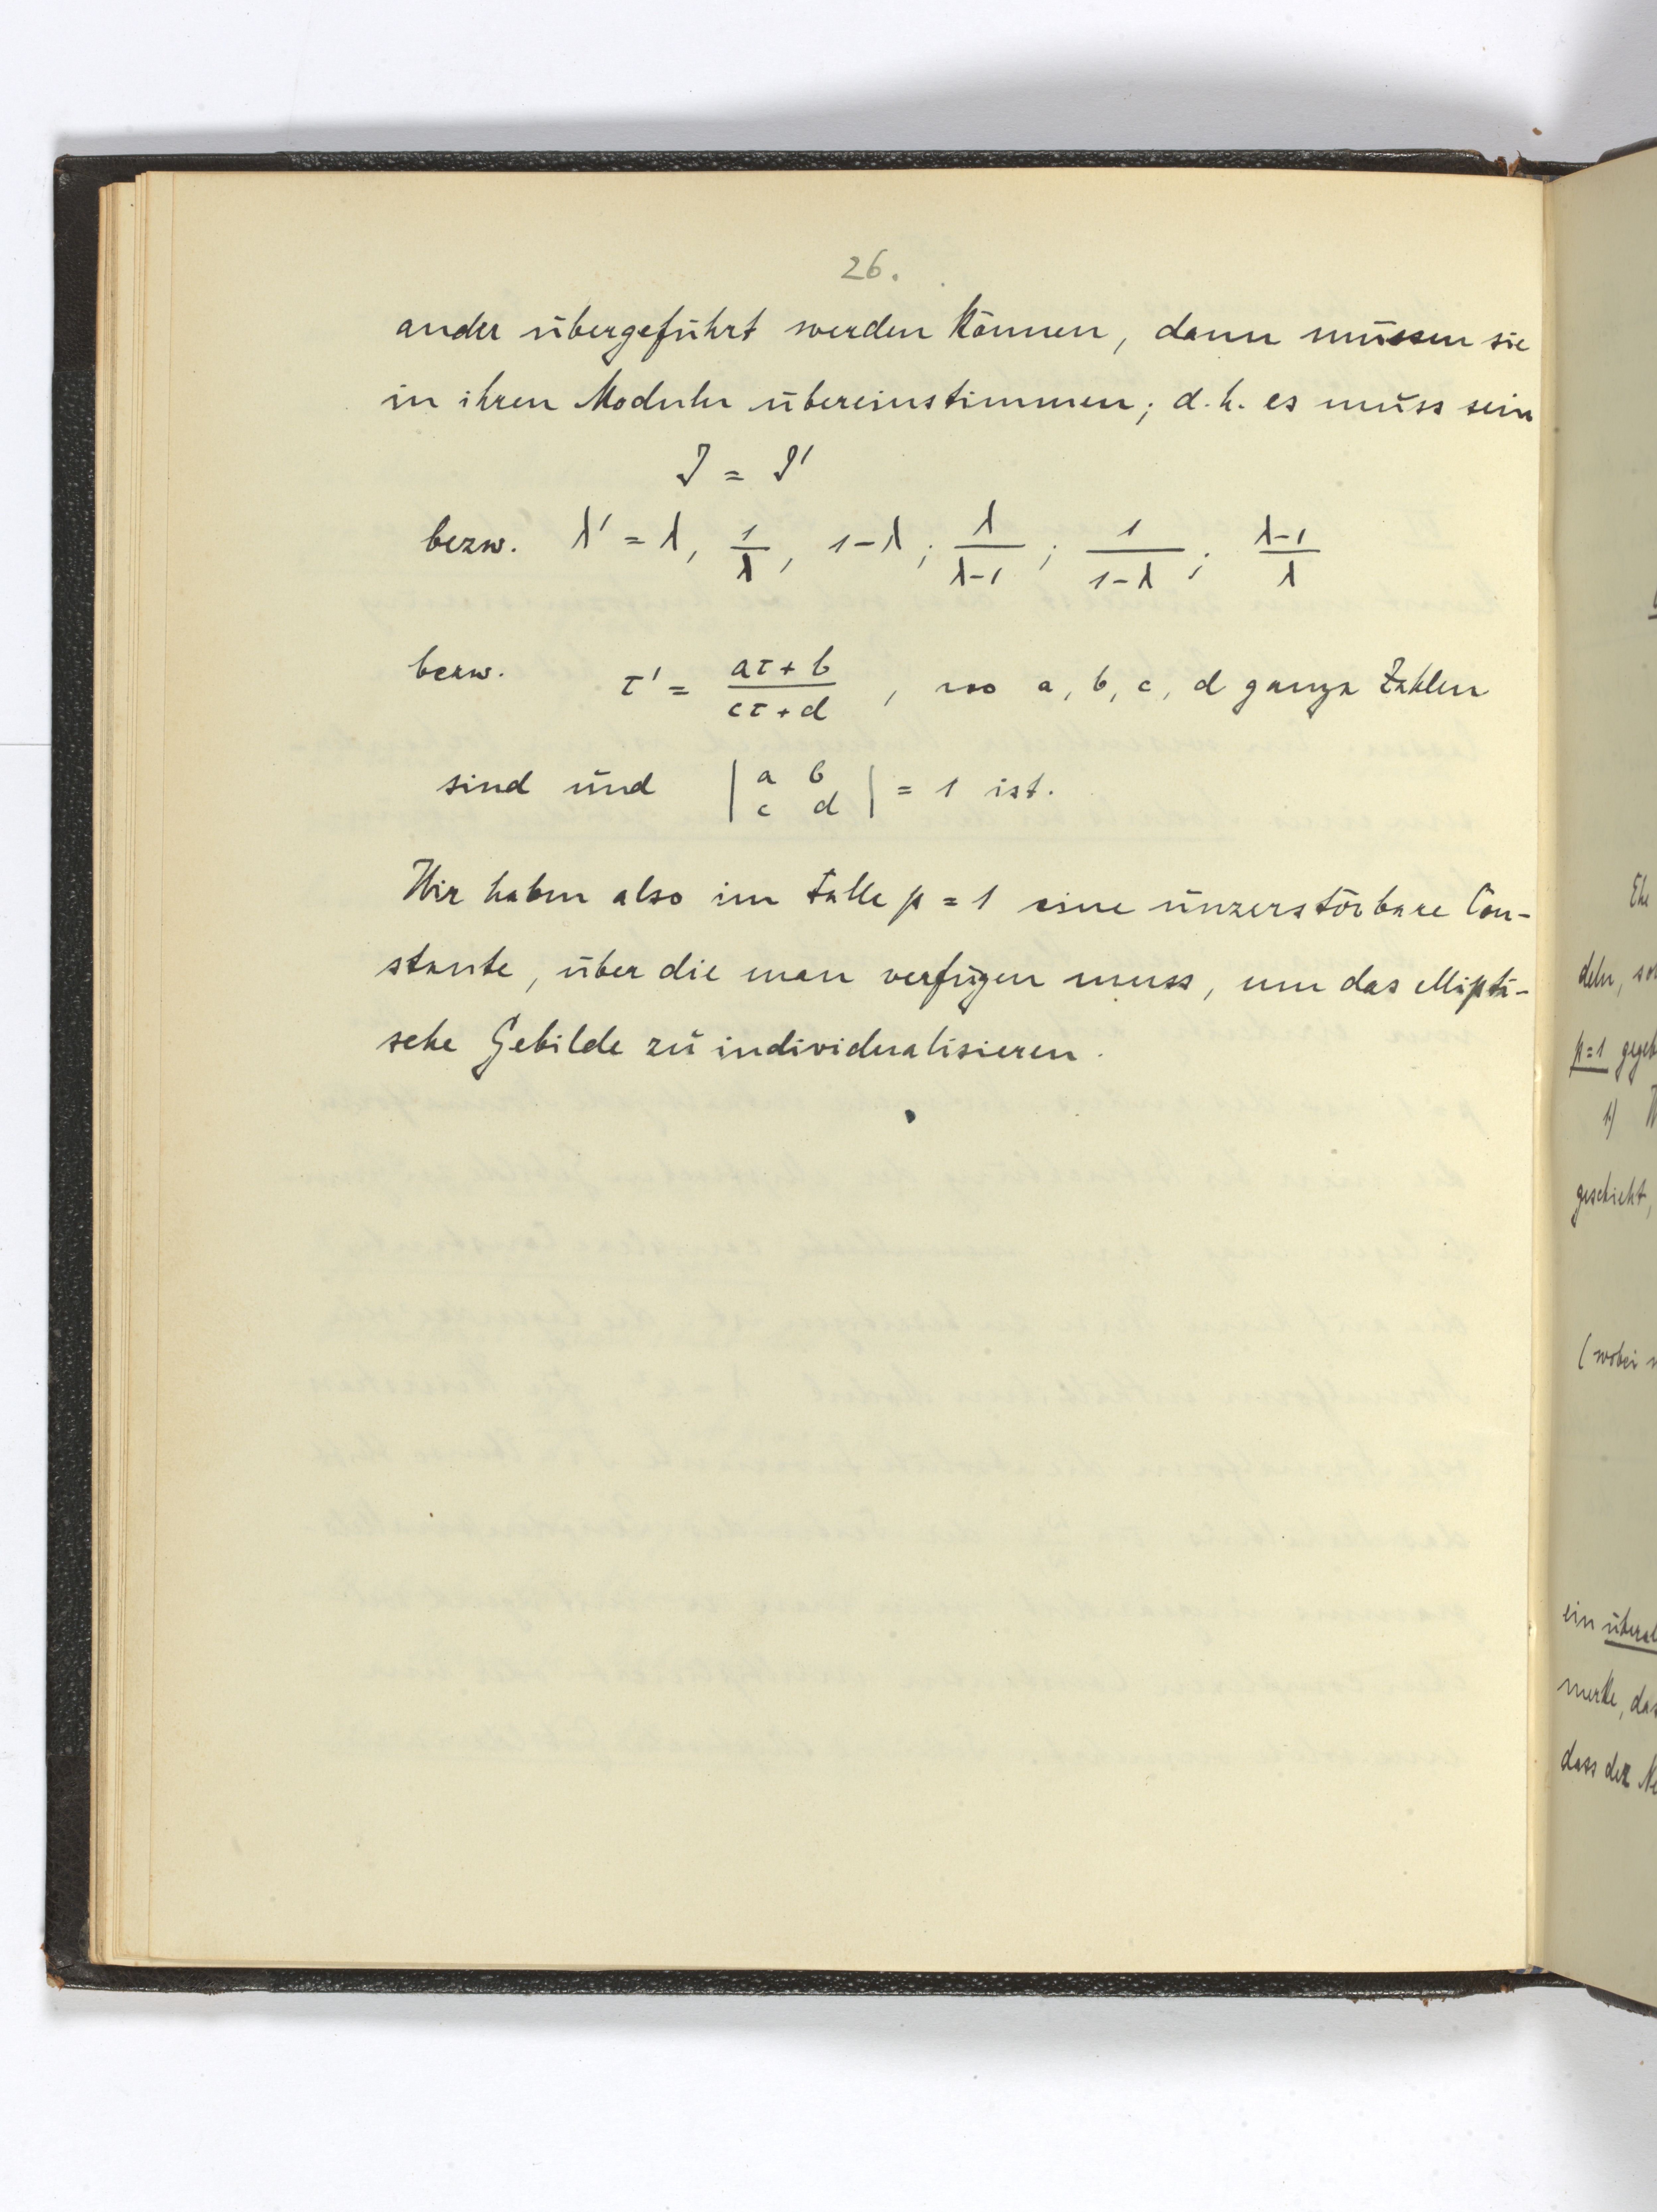 26.
ander übergeführt werden können, dann müssen sie
in ihren Moduln übereinstimmen; d.h. es muss sein
J = J'
bezw. λ' = λ, 1/λ, 1-λ; λ/(λ-1); 1/(1-λ); (λ-1)/λ
bezw. τ' = (aτ+b)/(cτ+d), wo a, b, c, d ganze Zahlen
sind und | a b c d | = 1 ist.
Wir haben also im Falle p = 1 eine unzerstörbare Con-
stante, über die man verfügen muss, um das ellipti-
sche Gebilde zu individualisieren.
Ehe
deln,
p=1
1)
geschieht,
(wobei
ein
merke,
dass der